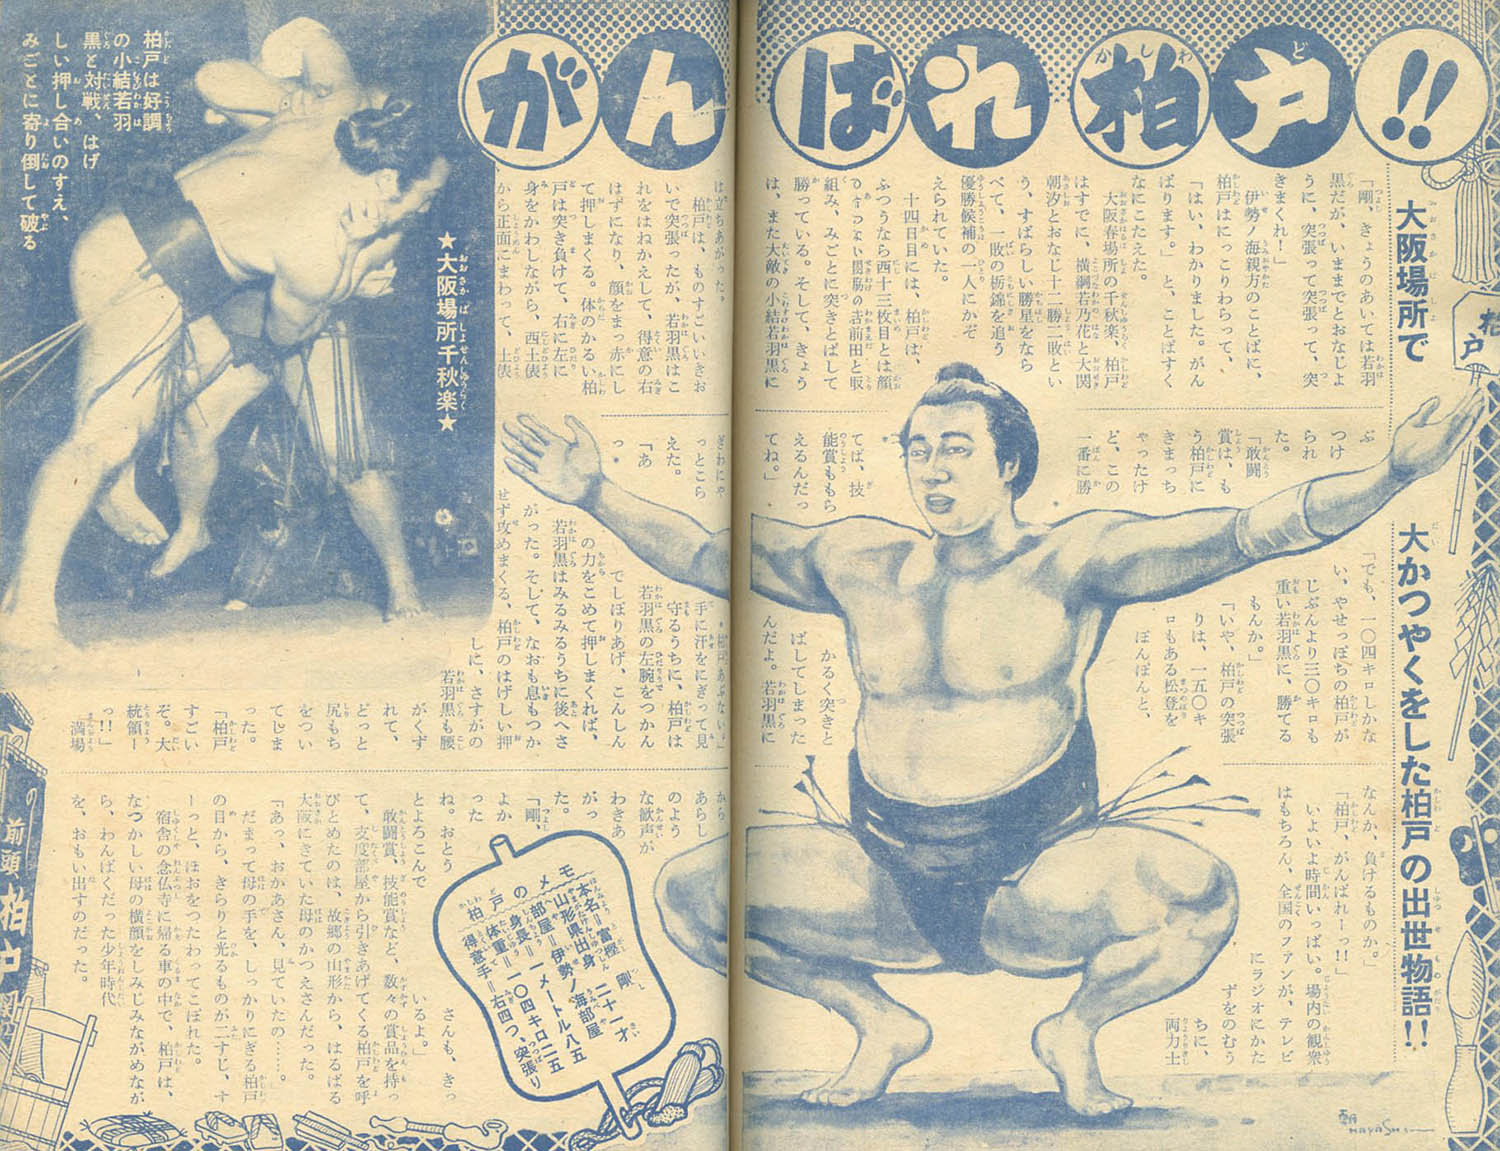 がんばれ柏戸!!
大阪場所で
大かつやくをした柏戸の出世物語!!
「剛、きょうのあいては若羽
黒だが、いままでとおなじよ
うに、突張って突張って、突
きまくれ！」
伊勢ノ海親方のことばに、
柏戸はにっこりわらって、
「はい、わかりました。がん
ばります。」と、ことばすく
なにこたえた。
大阪春場所の千秋楽、柏戸
はすでに、横綱若乃花と大関
朝汐とおなじ十二勝二敗とい
う、すばらしい勝星をなら
べて、一敗の栃錦を追う
優勝候補の一人にかぞ
えられていた。
十四日目には、柏戸は、
ふつうなら西十三枚目とは顔
のあわない関脇の若前田と取
組み、みごとに突きとばして
勝っている。そして、きょう
は、また大敵の小結若羽黒に
ぶ
つけ
られ
た。
「敢闘
賞は、も
う柏戸に
きまっち
ゃったけ
ど、この
一番に勝
てば、技
能賞ももら
えるんだっ
てね。」
「でも、一〇四キロしかな
い、やせっぽちの柏戸が
じぶんより三〇キロも
重い若羽黒に、勝てる
もんか。」
「いや、柏戸の突張
りは、一五〇キ
ロもある松登を
ぽんぽんと、
かるく突きと
ばしてしまった
んだよ。若羽黒に
なんか、負けるものか。」
「柏戸、がんばれーっ!!」
いよいよ時間いっぱい。場内の観衆
はもちろん、全国のファンが、テレビ
にラジオにかた
ずをのむう
ちに、
両力士
は立ちあがった。
柏戸は、ものすごいいきお
いで突張ったが、若羽黒はこ
れをはねかえして、得意の右
はずになり、顔をまっ赤にし
て押しまくる。体のかるい柏
戸は突き負けて、右に左に
身をかわしながら、西土俵
から正面にまわって、土俵
ぎわにや
っとこら
えた。
「あ
っ。
柏戸あぶない。」
手に汗をにぎって見
守るうちに、柏戸は
若羽黒の左腕をつかん
でしぼりあげ、こんしん
の力をこめて押しまくれば、
若羽黒はみるみるうちに後へさ
がった。そして、なおも息もつか
せず攻めまくる、柏戸のはげしい押
しに、さすがの
若羽黒も腰
がくず
れて、
どっと
尻もち
をつい
てしま
った。
「柏戸
すごい
ぞ。大
統領ー
っ!!」
満場
から
あらし
のよう
な歓声が
わきあ
がっ
た。
「剛
よか
った
ね。おとう
さんも、きっ
とよろこんで
いるよ。」
敢闘賞、技能賞など、数々の賞品を持っ
て、支度部屋から引きあげてくる柏戸を呼
びとめたのは、故郷の山形から、はるばる
大阪にきていた母のかつえさんだった。
「あっ、おかあさん、見ていたの……。」
だまって母の手を、しっかりにぎる柏戸
の目から、きらりと光るものが二すじ、す
ーっと、ほおをつたわってこぼれた。
宿舎の念仏寺に帰る車の中で、柏戸は、
なつかしい母の横顔をしみじみながめなが
ら、わんぱくだった少年時代
を、おもい出すのだった。
柏戸は好調
の小結若羽
黒と対戦、はげ
しい押し合いのすえ、
みごとに寄り倒して破る
★大阪場所千秋楽★
柏戸のメモ
本名＝富樫　剛
山形県出身　二十一才
部屋＝伊勢ノ海部屋
身長＝一メートル八五
体重＝一〇四キロ二五
得意手＝右四つ、突張り
柏戸
前頭 柏戸
HAYASHI